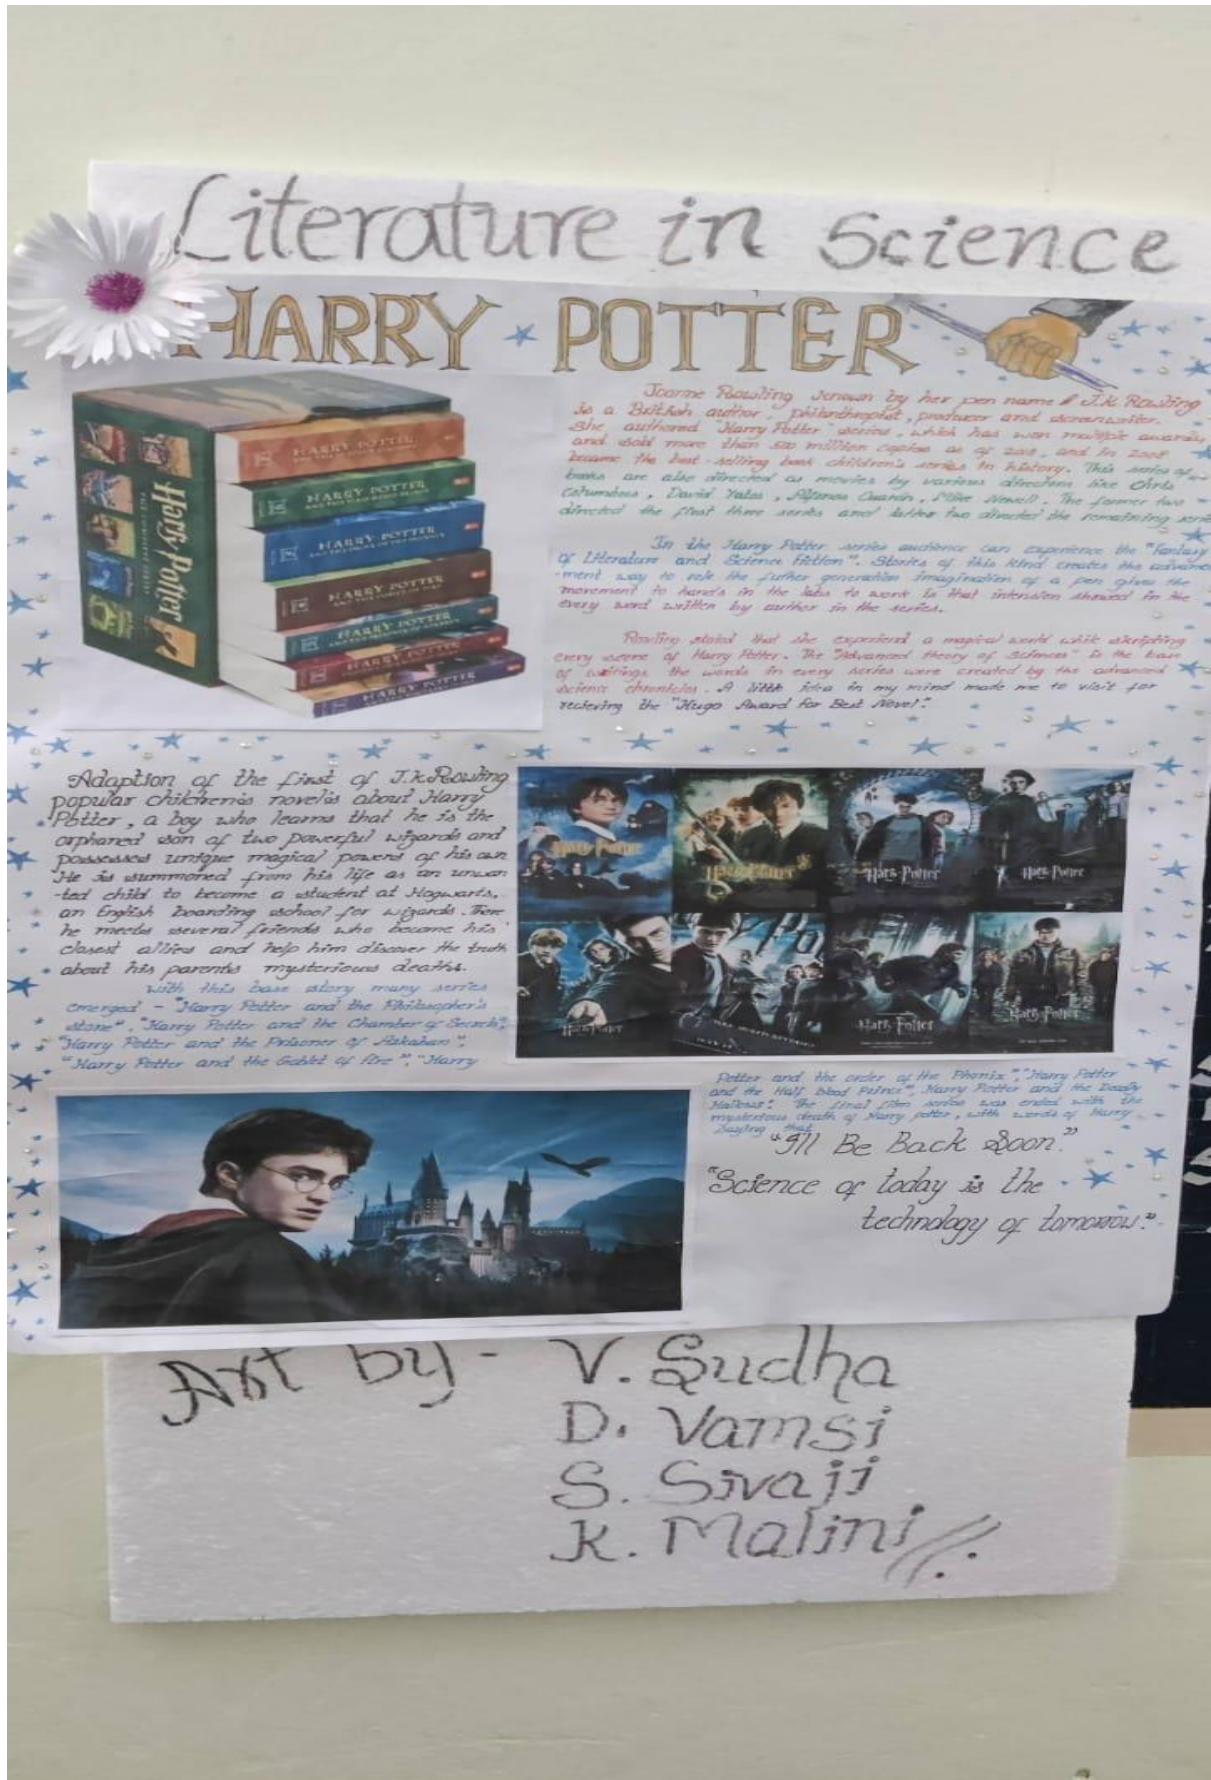 Literature in Science
HARRY POTTER
Joanne Rowling known by her pen name J.K. Rowling
is a British author, philanthropist, producer and screenwriter.
She authored "Harry Potter" series, which has won multiple awards,
and sold more than 500 million copies as of 2018, and in 2008
became the best-selling book children's series in history. This series of
books are also directed as movies by various directors like Chris
Columbus, David Yates, Alfonso Cuarón, Mike Newell. The former two
directed the first three series and latter two directed the remaining
In the Harry Potter series audience can experience the "Fantasy
of Literature and Science Fiction". Stories of this kind creates the advance
-ment way to role the futher generation imagination of a pen gives the
movement to hands in the labs to work is that intension showed in the
every word written by author in the series.
Rowling stated that she experiend a magical world while skripting
every scene of Harry Potter. The "Advanced theory of Sciences" is the base
of writings the words in every series were created by the advanced
science chronicles. A little idea in my mind made me to visit for
recieving the "Hugo Award for Best Novel".
HARRY POTTER
HARRY POTTER
HARRY POTTER
HARRY POTTER
HARRY POTTER
HARRY POTTER
HARRY POTTER
Harry Potter
Adaption of the first of J.K.Rowling
popular children's novel's about Harry
Potter, a boy who learns that he is the
orphaned son of two powerful wizards and
possesses unique magical powers of his own
He is summoned from his life as an unwan
-ted child to become a student at Hogwarts,
an English boarding school for wizards. There
he meets several friends who become his
closest allies and help him discover the truth
about his parents mysterious deaths.
With this base story many series
emerged - "Harry Potter and the Philosopher's
stone", "Harry Potter and the Chamber of Secrets",
"Harry Potter and the Prisoner of Azkaban",
"Harry Potter and the Goblet of fire", "Harry
Harry Potter
Harry Potter
Harry Potter
Harry Potter
Harry Potter
Harry Potter
Harry Potter
Potter and the order of the Phonix", "Harry Potter
and the Half blood Prince", Harry Potter and the Deadly
Hallows". The final film series was ended with the
mysterious death of Harry potter, with words of Harry
Saying that
"I'll Be Back Soon."
"Science of today is the
technology of tomorrow."
Art by - V. Sudha
D. Vamsi
S. Sivaji
K. Malini